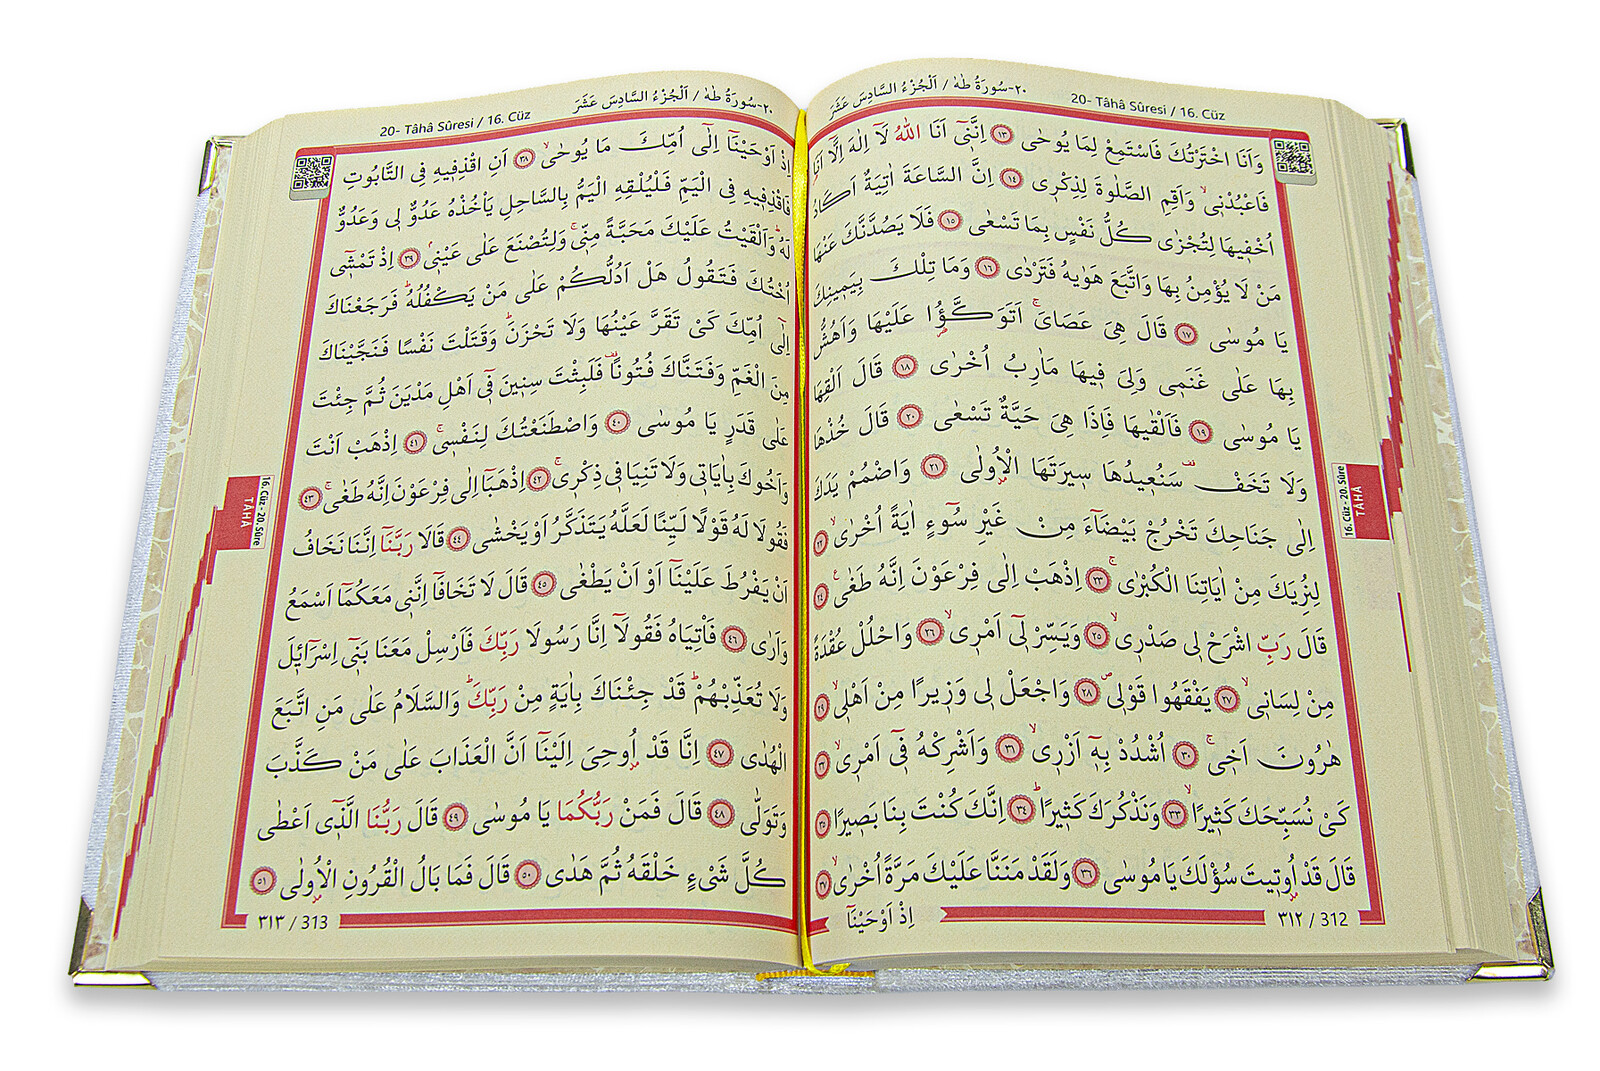 ٢٠-سُورَةُ طٰهٰ / اَلْجُزْءُ السَّادِسَ عَشَرَ
20- Tâhâ Sûresi / 16. Cüz
وَاَنَا اخْتَرْتُكَ فَاسْتَمِعْ لِمَا يُوحٰى ١٣ اِنَّنٖٓى اَنَا اللّٰهُ لَٓا اِلٰهَ اِلَّٓا اَنَا۬
فَاعْبُدْنٖىۙ وَاَقِمِ الصَّلٰوةَ لِذِكْرٖى ١٤ اِنَّ السَّاعَةَ اٰتِيَةٌ اَكَادُ
اُخْفٖيهَا لِتُجْزٰى كُلُّ نَفْسٍ بِمَا تَسْعٰى ١٥ فَلَا يَصُدَّنَّكَ عَنْهَا
مَنْ لَا يُؤْمِنُ بِهَا وَاتَّبَعَ هَوٰيهُ فَتَرْدٰى ١٦ وَمَا تِلْكَ بِيَمٖينِكَ
يَا مُوسٰى ١٧ قَالَ هِىَ عَصَاىَۚ اَتَوَكَّؤُا عَلَيْهَا وَاَهُشُّ
بِهَا عَلٰى غَنَمٖى وَلِىَ فٖيهَا مَاٰرِبُ اُخْرٰى ١٨ قَالَ اَلْقِهَا
يَا مُوسٰى ١٩ فَاَلْقٰيهَا فَاِذَا هِىَ حَيَّةٌ تَسْعٰى ٢٠ قَالَ خُذْهَا
وَلَا تَخَفْ سَنُعٖيدُهَا سٖيرَتَهَا الْاُو۫لٰى ٢١ وَاضْمُمْ يَدَكَ
اِلٰى جَنَاحِكَ تَخْرُجْ بَيْضَٓاءَ مِنْ غَيْرِ سُٓوءٍ اٰيَةً اُخْرٰىۙ ٢٢
لِنُرِيَكَ مِنْ اٰيَاتِنَا الْكُبْرٰىۚ ٢٣ اِذْهَبْ اِلٰى فِرْعَوْنَ اِنَّهُ طَغٰى ٢٤
قَالَ رَبِّ اشْرَحْ لٖى صَدْرٖىۙ ٢٥ وَيَسِّرْ لٖٓى اَمْرٖىۙ ٢٦ وَاحْلُلْ عُقْدَةً
مِنْ لِسَانٖىۙ ٢٧ يَفْقَهُوا قَوْلٖىۖ ٢٨ وَاجْعَلْ لٖى وَزٖيرًا مِنْ اَهْلٖىۙ ٢٩
هٰرُونَ اَخٖىۚ ٣٠ اُشْدُدْ بِهٖٓ اَزْرٖىۙ ٣١ وَاَشْرِكْهُ فٖٓى اَمْرٖىۙ ٣٢
كَىْ نُسَبِّحَكَ كَثٖيرًاۙ ٣٣ وَنَذْكُرَكَ كَثٖيرًاؕ ٣٤ اِنَّكَ كُنْتَ بِنَا بَصٖيرًا ٣٥
قَالَ قَدْ اُو۫تٖيتَ سُؤْلَكَ يَا مُوسٰى ٣٦ وَلَقَدْ مَنَنَّا عَلَيْكَ مَرَّةً اُخْرٰىۙ ٣٧
٣١٢ / 312
اِذْ اَوْحَيْنَٓا
16. Cüz - 20. Sûre
TÂHÂ
20- Tâhâ Sûresi / 16. Cüz
٢٠-سُورَةُ طٰهٰ / اَلْجُزْءُ السَّادِسَ عَشَرَ
اِذْ اَوْحَيْنَٓا اِلٰٓى اُمِّكَ مَا يُوحٰىۙ ٣٨ اَنِ اقْذِفٖيهِ فِى التَّابُوتِ
فَاقْذِفٖيهِ فِى الْيَمِّ فَلْيُلْقِهِ الْيَمُّ بِالسَّاحِلِ يَاْخُذْهُ عَدُوٌّ لٖى وَعَدُوٌّ
لَهُؕ وَاَلْقَيْتُ عَلَيْكَ مَحَبَّةً مِنّٖىۚ وَلِتُصْنَعَ عَلٰى عَيْنٖىۘ ٣٩ اِذْ تَمْشٖٓى
اُخْتُكَ فَتَقُولُ هَلْ اَدُلُّكُمْ عَلٰى مَنْ يَكْفُلُهُؕ فَرَجَعْنَاكَ
اِلٰٓى اُمِّكَ كَىْ تَقَرَّ عَيْنُهَا وَلَا تَحْزَنَؕ وَقَتَلْتَ نَفْسًا فَنَجَّيْنَاكَ
مِنَ الْغَمِّ وَفَتَنَّاكَ فُتُونًا فَلَبِثْتَ سِنٖينَ فٖٓى اَهْلِ مَدْيَنَ ثُمَّ جِئْتَ
عَلٰى قَدَرٍ يَا مُوسٰى ٤٠ وَاصْطَنَعْتُكَ لِنَفْسٖىۚ ٤١ اِذْهَبْ اَنْتَ
وَاَخُوكَ بِاٰيَاتٖى وَلَا تَنِيَا فٖى ذِكْرٖىۚ ٤٢ اِذْهَبَٓا اِلٰى فِرْعَوْنَ اِنَّهُ طَغٰىۚ ٤٣
فَقُولَا لَهُ قَوْلًا لَيِّنًا لَعَلَّهُ يَتَذَكَّرُ اَوْ يَخْشٰى ٤٤ قَالَا رَبَّنَٓا اِنَّنَا نَخَافُ
اَنْ يَفْرُطَ عَلَيْنَٓا اَوْ اَنْ يَطْغٰى ٤٥ قَالَ لَا تَخَافَٓا اِنَّنٖى مَعَكُمَٓا اَسْمَعُ
وَاَرٰى ٤٦ فَاْتِيَاهُ فَقُولَٓا اِنَّا رَسُولَا رَبِّكَ فَاَرْسِلْ مَعَنَا بَنٖٓى اِسْرَٓائٖلَ
وَلَا تُعَذِّبْهُمْؕ قَدْ جِئْنَاكَ بِاٰيَةٍ مِنْ رَبِّكَؕ وَالسَّلَامُ عَلٰى مَنِ اتَّبَعَ
الْهُدٰى ٤٧ اِنَّا قَدْ اُو۫حِىَ اِلَيْنَٓا اَنَّ الْعَذَابَ عَلٰى مَنْ كَذَّبَ
وَتَوَلّٰى ٤٨ قَالَ فَمَنْ رَبُّكُمَا يَا مُوسٰى ٤٩ قَالَ رَبُّنَا الَّذٖٓى اَعْطٰى
كُلَّ شَىْءٍ خَلْقَهُ ثُمَّ هَدٰى ٥٠ قَالَ فَمَا بَالُ الْقُرُونِ الْاُو۫لٰى ٥١
٣١٣ / 313
16. Cüz - 20. Sûre
TÂHÂ